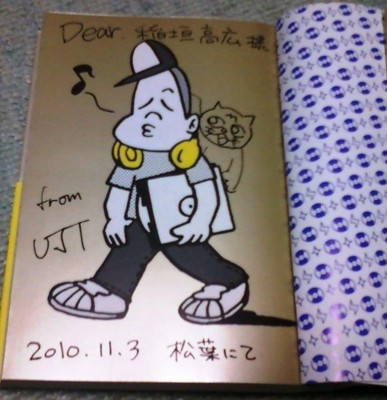 Dear. 稲垣 高広 様
from
UJT
2010.11.3 松葉にて